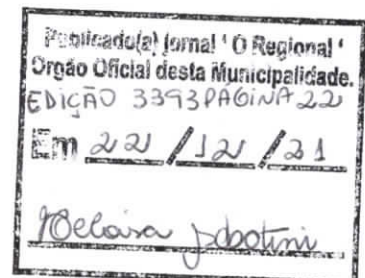 Publicado(a) jornal ' O Regional '
Orgão Oficial desta Municipalidade.
EDIÇÃO 3393 PAGINA 22
Em 22 / 12 / 21